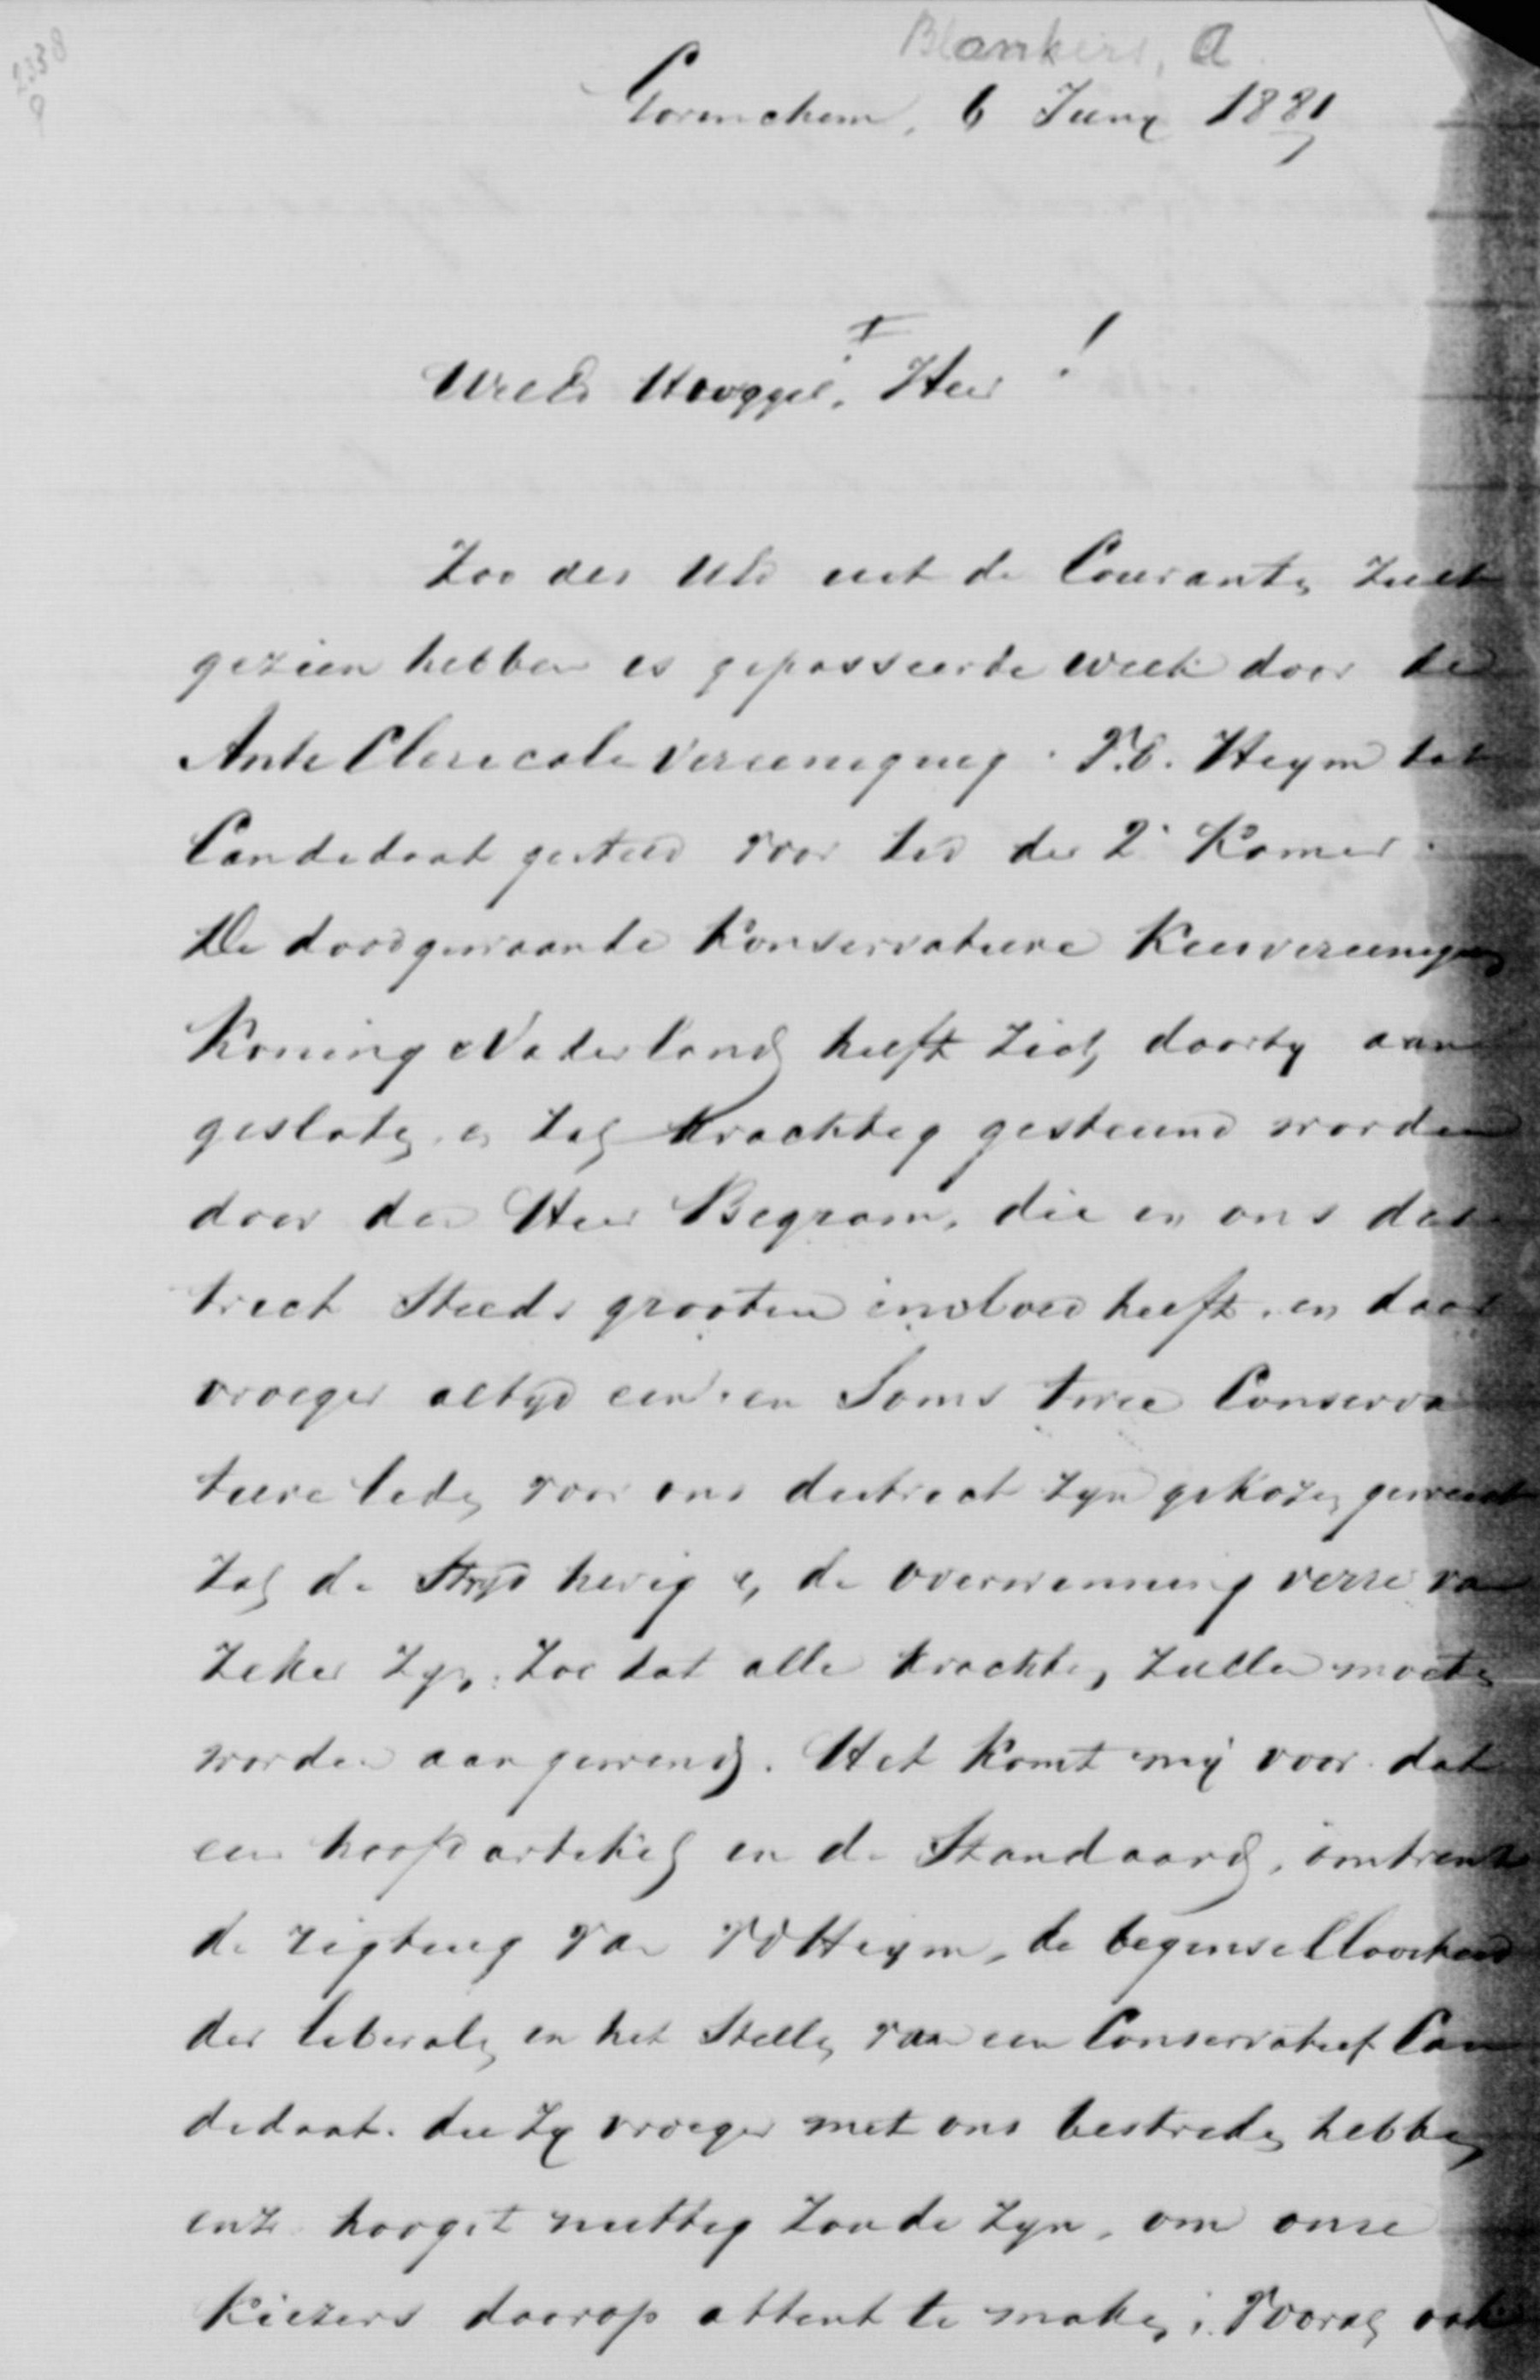 2338
Blankers, A.
Gorinchem, 6 Juny 1881
WelEd Hooggel. Heer!
Zoo als UEd uit de Couranten zult
gezien hebben is gepasseerde week door de
Anti Clericale Vereeniging V.d. Heym tot
Candidaat gesteld voor lid der 2e Kamer.
De doodgewaande Konservatieve Kiesvereeniging
Koning Vaderland heeft zich daarby aan
gesloten, en zal krachtig gesteund worden
door den Heer Begram, die in ons dis
trict steeds grooten invloed heeft, en daar
vroeger altyd een en soms twee Conserva
tieve leden voor ons district zyn gekozen geweest
zal de Stryd hevig en de overwinning verre van
zeker zyn, zoo dat alle krachten zullen moeten
worden aangewend. Het komt my voor dat
een hoofdartikel in de Standaard, omtrent
de rigting van VdHeym, de beginselloosheid
der liberalen in het Stellen van een Conservatief Can
didaat die zy vroeger met ons bestreden hebben
enz hoogst nuttig zoude zyn, om onze
Kiezers daarop attent te maken, Vooral ook